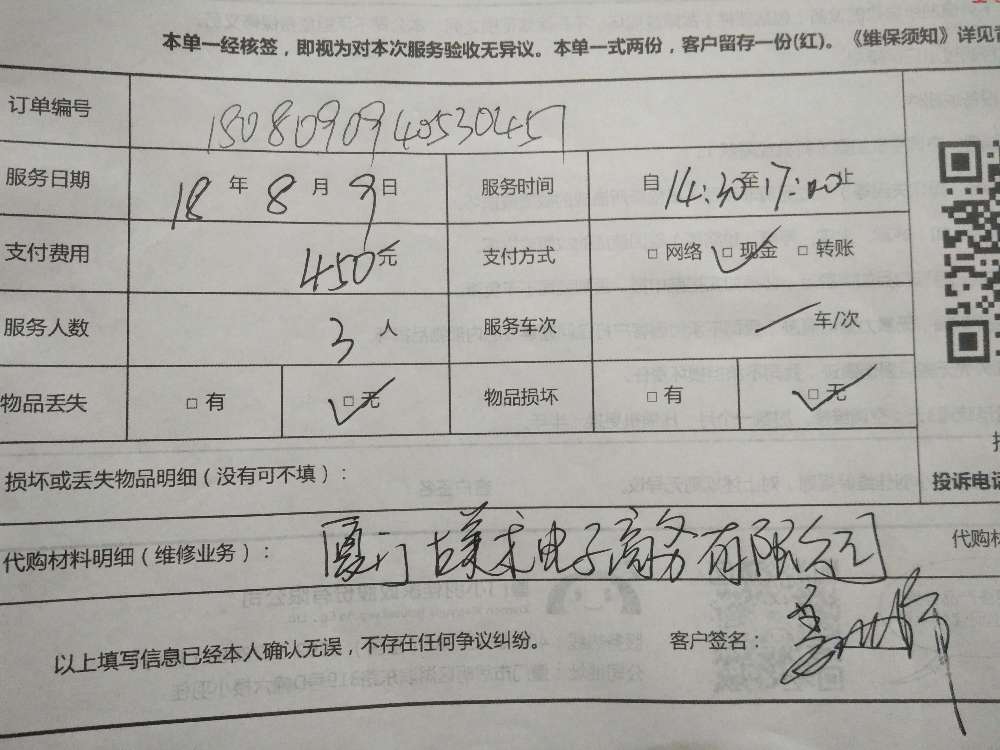 本单一经核签，即视为对本次服务验收无异议。本单一式两份，客户留存一份(红)。《维保须知》详见背
订单编号 180809094053045
服务日期 18 年 8 月 9 日 服务时间 自 14:30 至 17:00 止
支付费用 450 元 支付方式 □ 网络 □ 现金 □ 转账
服务人数 3 人 服务车次 车/次
物品丢失 □ 有 □ 无 物品损坏 □ 有 □ 无
损坏或丢失物品明细（没有可不填）：
投诉电话
代购材料明细（维修业务）： 厦门 电子商务有限公司 代购材
以上填写信息已经本人确认无误，不存在任何争议纠纷。 客户签名：